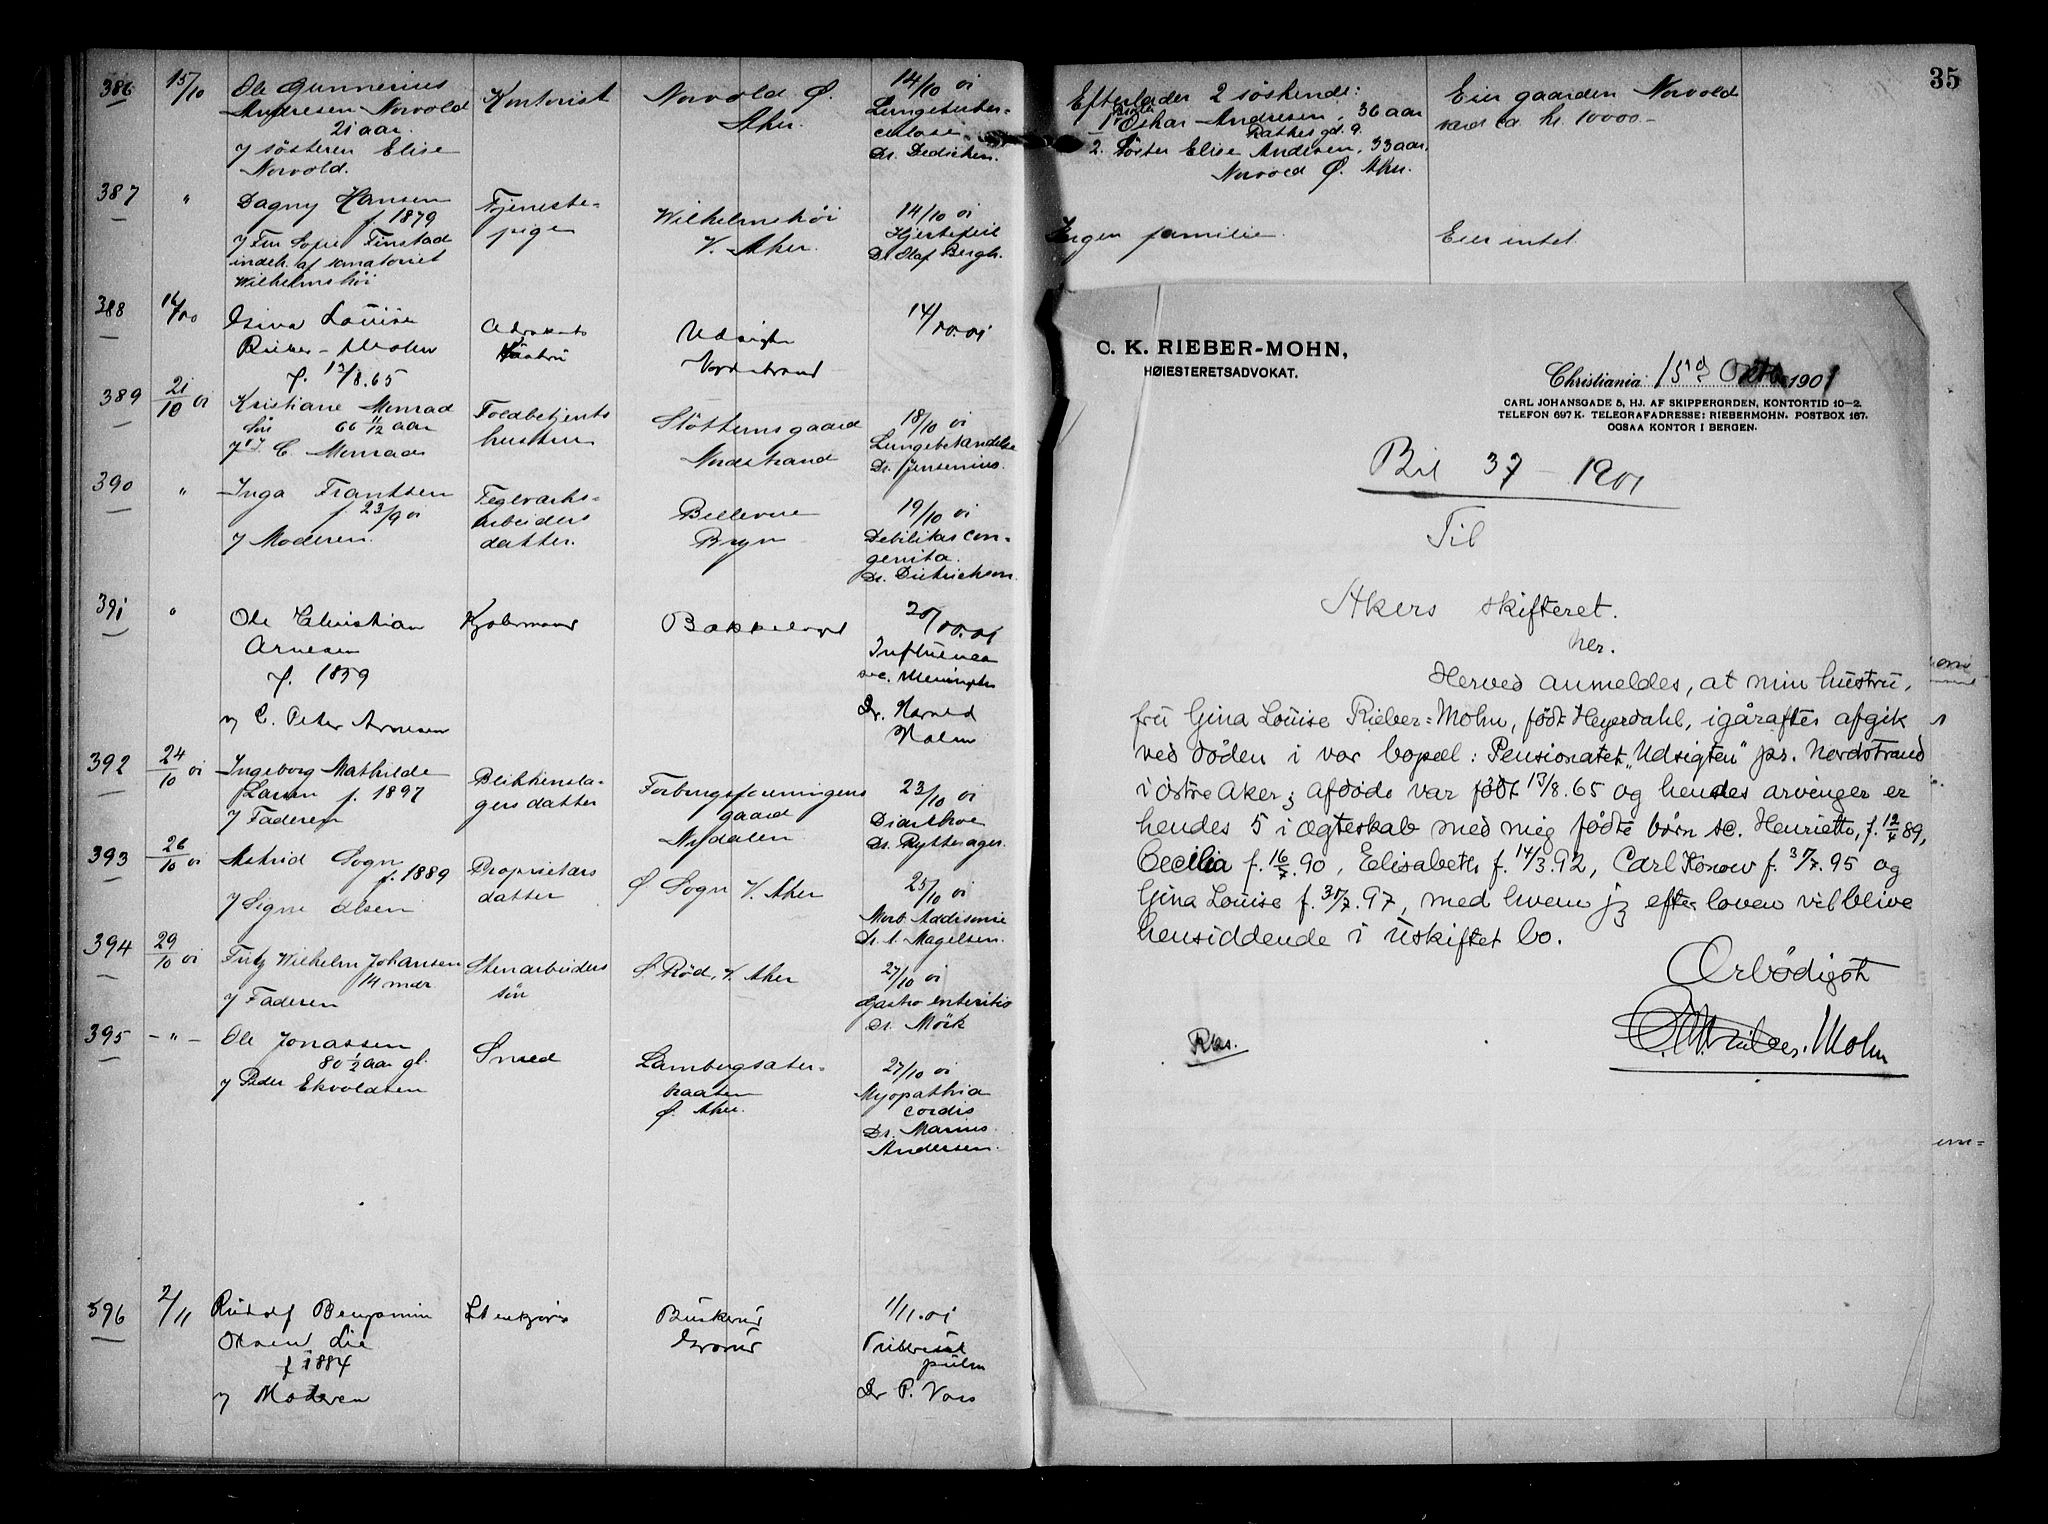 35
386
15/10
Ole Gunnerius
Andresen Norvold
21 aar.
v/ søsteren Elise
Norvold.
Kontorist
Norvold Ø.
Aker.
14/10 01
Lungetuber-
culose
Dr. Dedichen.
Efterlader 2 søskende:
1. Broder Oskar Andresen, 36 aar
Rathkes gd. 9.
2. Søster Elise Andresen, 33 aar,
Norvold Ø. Aker.
Eier gaarden Norvold
værd ca. kr. 10000.-
387
"
Dagny Hansen
f. 1879
v/ Fru Sofie Finstad
indeh. af sanatoriet
Wilhelmshøi
Tjeneste-
pige
Wilhelmshøi
V. Aker.
14/10 01
Hjertefeil
Dr. Olaf Bergh.
Ingen familie.
Eier intet.
388
16/10
Gina Louise
Rieber-Mohn
f. 13/8.65
Advokats
hustru
Udsigten
Nordstrand
14/10.01
389
21/10 01
Kristiane Monrad
66 11/12 aar
C. Monrad
Toldbetjents
hustru
Slottumsgaard
Nordstrand
18/10 01
Lungebetændelse
Dr. Jensenius.
390
"
Inga Frantsen
f. 23/9 01
v/ Moderen.
Teglværks-
arbeiders
datter.
Bellevue
Bryn
19/10 01
Debilitas con-
genita.
Dr. Dietrichson.
391
"
Ole Christian
Arnesen
f. 1859
v/ C. Peter Arnesen
Kjøbmand
Bækkelaget
20/10.01
Influenca
sec. Meningitis
Dr. Harald
Holm
392
24/10 01
Ingeborg Mathilde
Larsen f. 1897
v/ Faderen
Blikkensla-
gers datter
Forbrugsforeningens
gaard
Nydalen
23/10 01
Diarrhoe
Dr. Rytterager.
393
26/10 01
Astrid Sogn
f. 1889
v/ Signe Olsen
Proprietærs
datter
Ø Sogn V. Aker
25/10 01
Morb. Addisonie
Dr. A. Magelsen.
394
29/10 01
Fritz Wilhelm Johansen
14 mdr
v/ Faderen
Stenarbeiders
søn
S. Rød, V. Aker
27/10 01
Gastro enteritis
Dr. Mørk
395
- " -
Ole Jonassen
80 1/2 aar gl.
v/ Peder Ekvoldsen
Smed
Lambergsæter-
braaten
Ø. Aker.
27/10 01
Myopathia
cordis
Dr. Marius
Andersen.
396
2/11
Rudolf Benjamin
Olsen Lie
f 1884
v/ Moderen
Buskerud
Grorud
1/11.01
Tubercul
pulm
Dr P. Voss
C. K. RIEBER-MOHN,
HØIESTERETSADVOKAT.
Christiania 15de Oktb. 1901
CARL JOHANSGADE 5, HJ. AF SKIPPERGRDEN, KONTORTID 10-2.
TELEFON 697 K. TELEGRAFADRESSE: RIEBERMOHN. POSTBOX 167.
OGSAA KONTOR I BERGEN.
Bil 37 - 1901
Til
Akers skifteret.
her.
Herved anmeldes, at min hustru,
fru Gina Louise Rieber-Mohn, født Heyerdahl, igåraftes afgik
ved døden i vor bopæl: Pensionatet „Udsigten" pr. Nordstrand
i østre Aker; afdøde var født 13/8.65 og hendes arvinger er
hendes 5 i ægteskab med mig fødte børn sc. Henriette, f. 12/4 89,
Cecilia f. 16/7.90, Elisabeth f. 14/3.92, Carl Konow f. 31/7.95 og
Gina Louise f. 31/7.97, med hvem jeg efter loven vil blive
hensiddende i uskiftet bo.
Ærbødigst
C. K. Rieber-Mohn